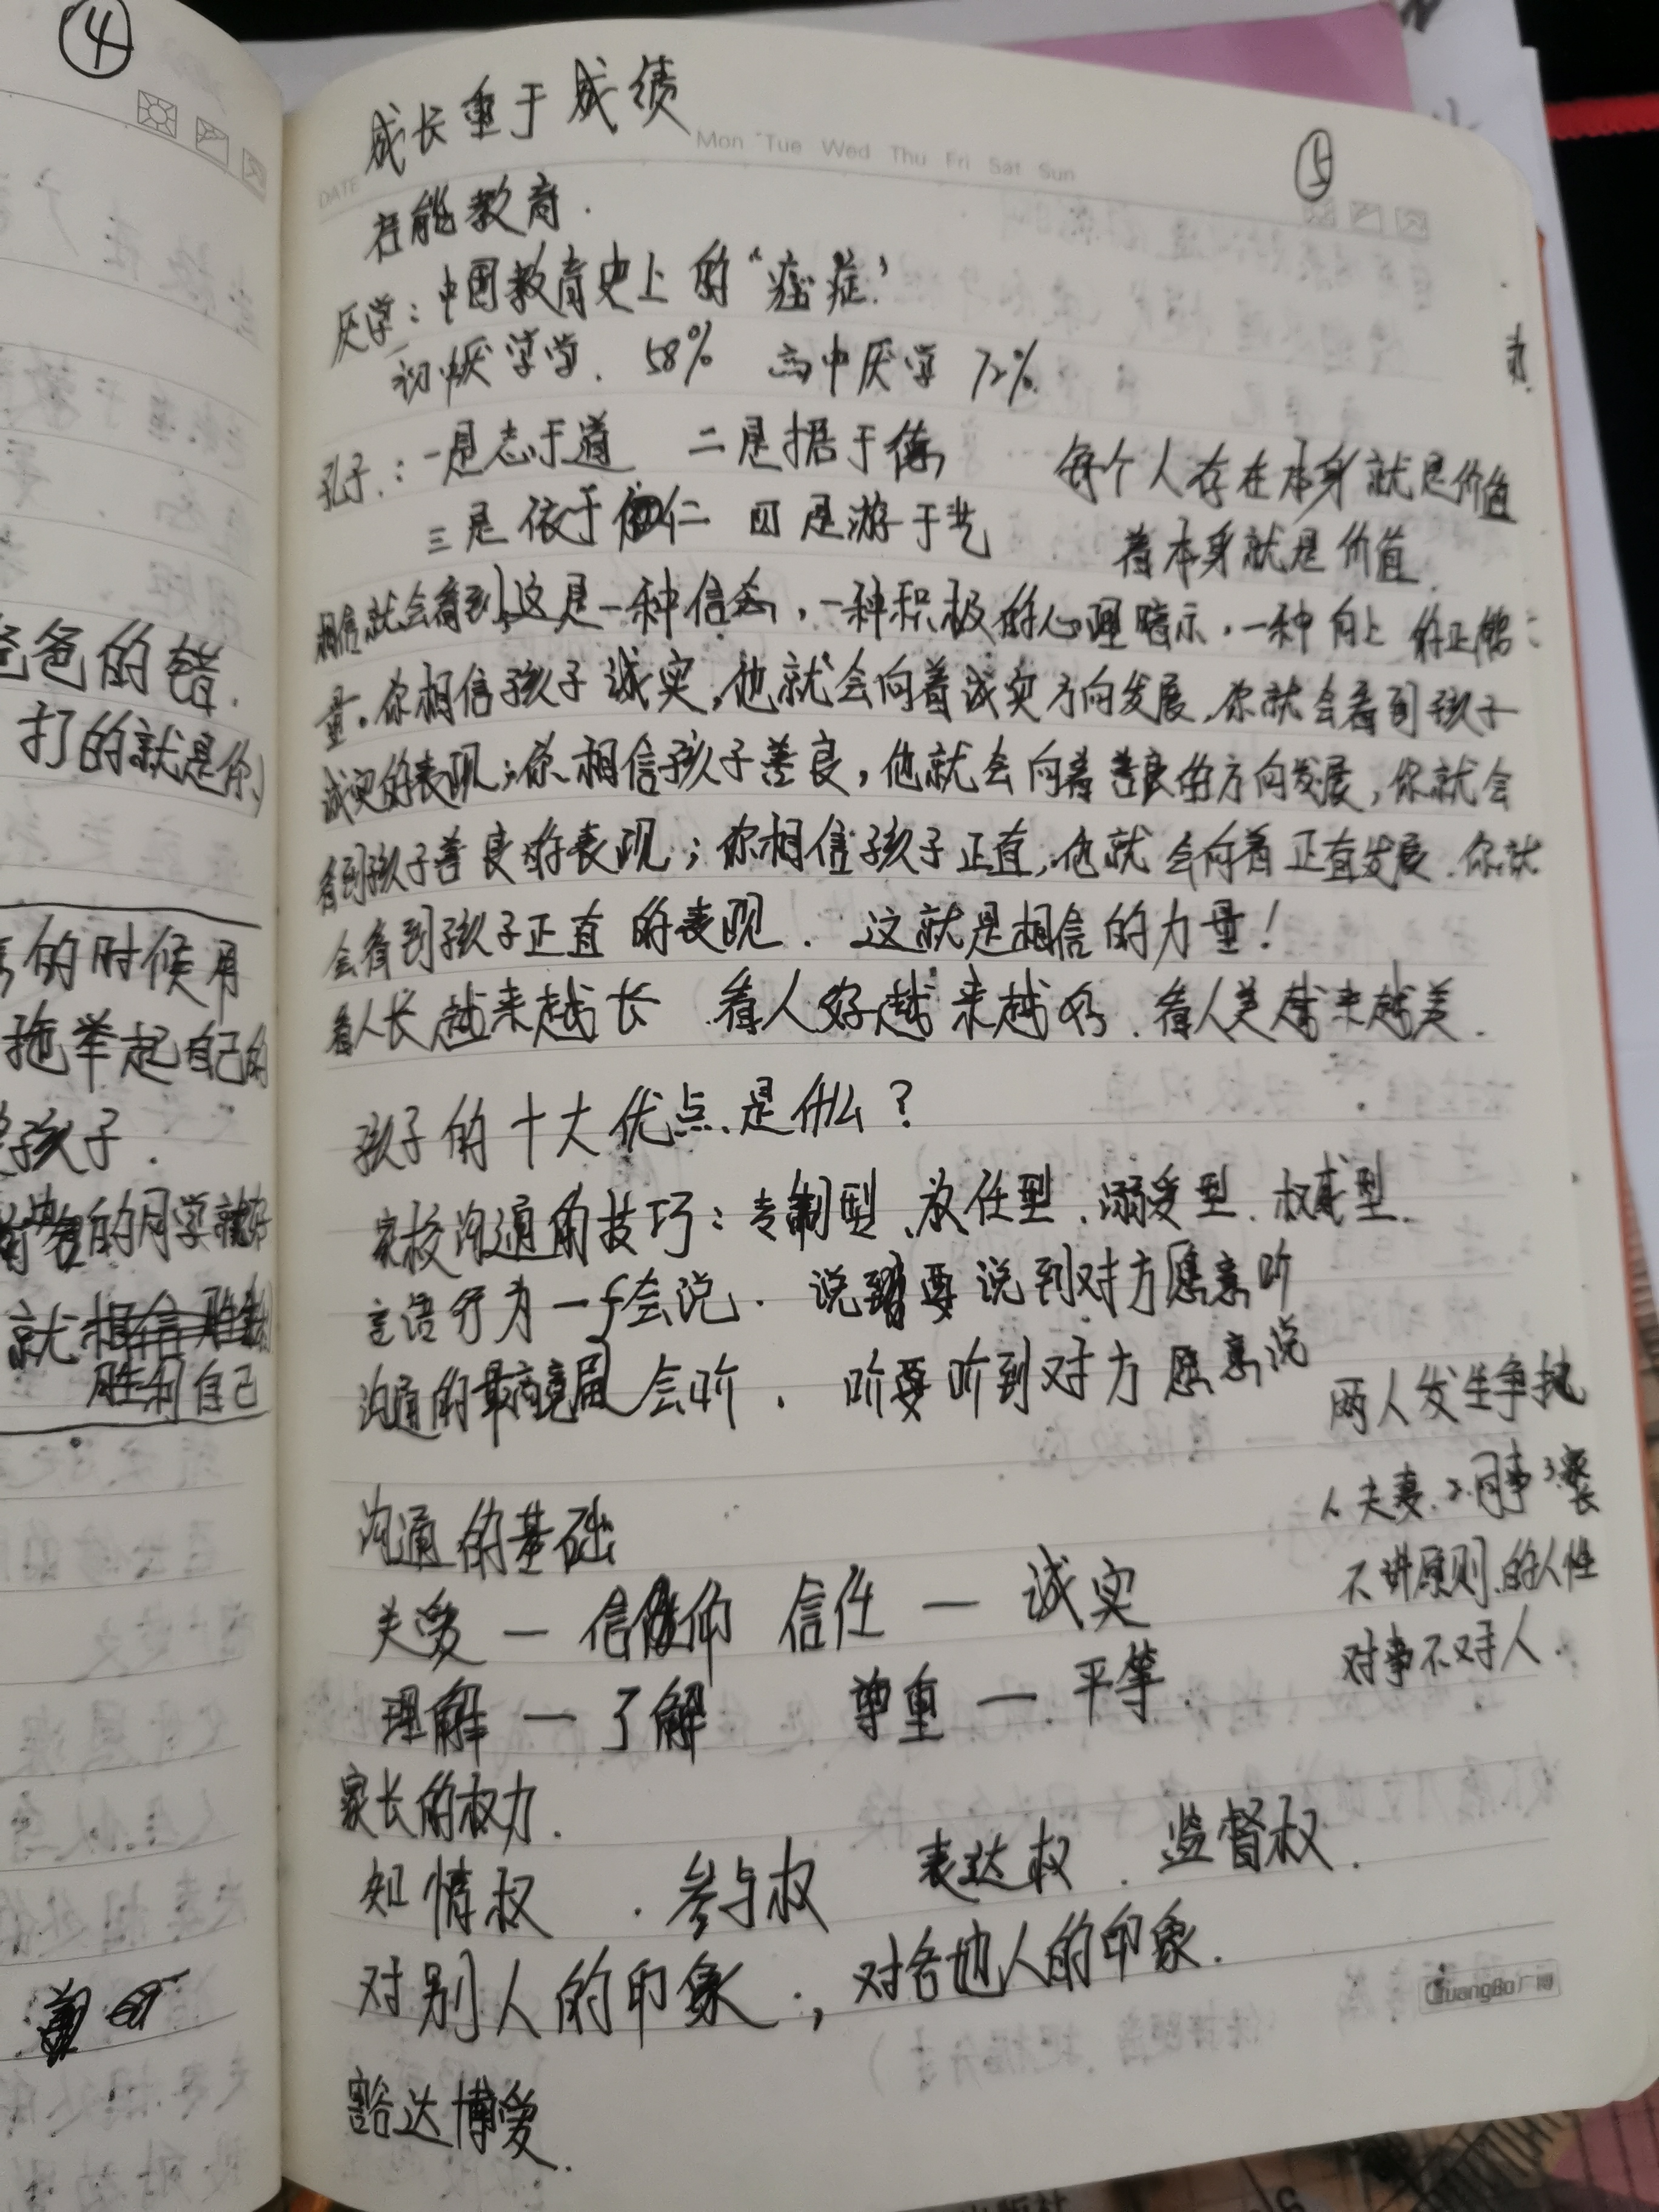 ④
爸爸的错.
打的就是你
的时候用
拖举起自己的
孩子.
的同学就好
就相信
胜利自己
成长重于成绩
Mon Tue Wed Thu Fri Sat Sun
⑤
DATE
能教育.
厌学:中国教育史上的“癌症”
初中厌学 58% 高中厌学 72%.
孔子:一是志于道 二是据于德
三是依于仁 四是游于艺
每个人存在本身就是价值
着本身就是价值.
相信就会看到,这是一种信念,一种积极的心理暗示,一种向上的正能
量。你相信孩子诚实,他就会向着诚实方向发展,你就会看到孩子
诚实的表现;你相信孩子善良,他就会向着善良的方向发展,你就会
看到孩子善良的表现;你相信孩子正直,他就会向着正直发展.你就
会看到孩子正直的表现.这就是相信的力量!
看人长越来越长 看人好越来越好.看人美越来越美.
孩子的十大优点是什么?
家校沟通的技巧:专制型、放任型、溺爱型、权威型.
言语行为一个会说. 说要说到对方愿意听
沟通的最高境界会听. 听要听到对方愿意说
两人发生争执
1.夫妻.2.同事3.
不讲原则的人性
对事不对人.
沟通的基础
关爱—信仰 信任—诚实
理解—了解 尊重—平等.
家长的权力.
知情权.参与权 表达权.监督权.
对别人的印象.,对各地人的印象.
GuangBo广博
豁达博爱.